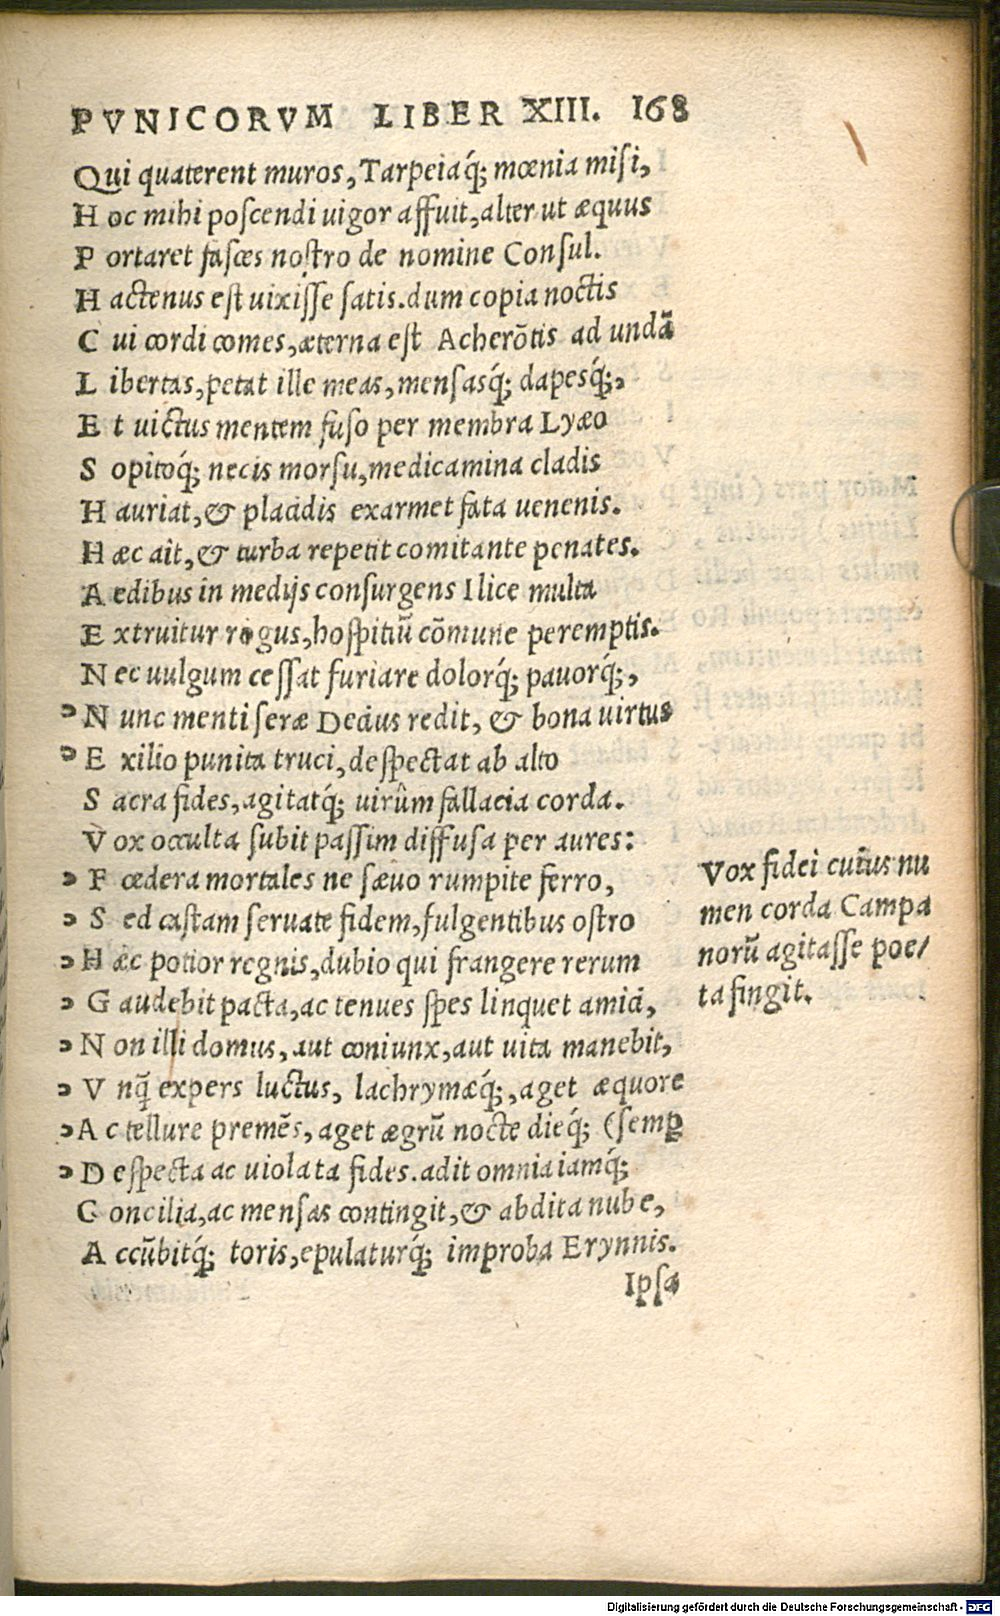 PVNICORVM LIBER XIII. 168
Qui quaterent muros, Tarpeiaq́; mœnia misi,
Hoc mihi poscendi uigor affuit, alter ut æquus
Portaret fasces nostro de nomine Consul.
Hactenus est uixisse satis. dum copia noctis
Cui cordi comes, æterna est Acherōtis ad undā
Libertas, petat ille meas, mensasq́; dapesq́;,
Et uictus mentem fuso per membra Lyæo
Sopitoq́; necis morsu, medicamina cladis
Hauriat, & placidis exarmet fata uenenis.
Hæc ait, & turba repetit comitante penates.
Aedibus in medijs consurgens Ilice multa
Extruitur rogus, hospitiū cōmune peremptis.
Nec uulgum cessat furiare dolorq́; pauorq́;,
Nunc menti seræ Decius redit, & bona uirtus
Exilio punita truci, despectat ab alto
Sacra fides, agitatq́; uirûm fallacia corda.
Vox occulta subit passim diffusa per aures:
Fœdera mortales ne sæuo rumpite ferro,
Sed castam seruate fidem, fulgentibus ostro
Hæc potior regnis, dubio qui frangere rerum
Gaudebit pacta, ac tenues spes linquet amici,
Non illi domus, aut coniunx, aut uita manebit,
Vnq̄ expers luctus, lachrymæq́;, aget æquore
Ac tellure premēs, aget ægrū nocte dieq́; (semꝑ
Despecta ac uiolata fides. adit omnia iamq́;
Concilia, ac mensas contingit, & abdita nube,
Accūbitq́; toris, epulaturq́; improba Erynnis.
Ipsa
Vox fidei cuius nu
men corda Campa
norū agitasse poe/
ta fingit.
Digitalisierung gefördert durch die Deutsche Forschungsgemeinschaft - DFG